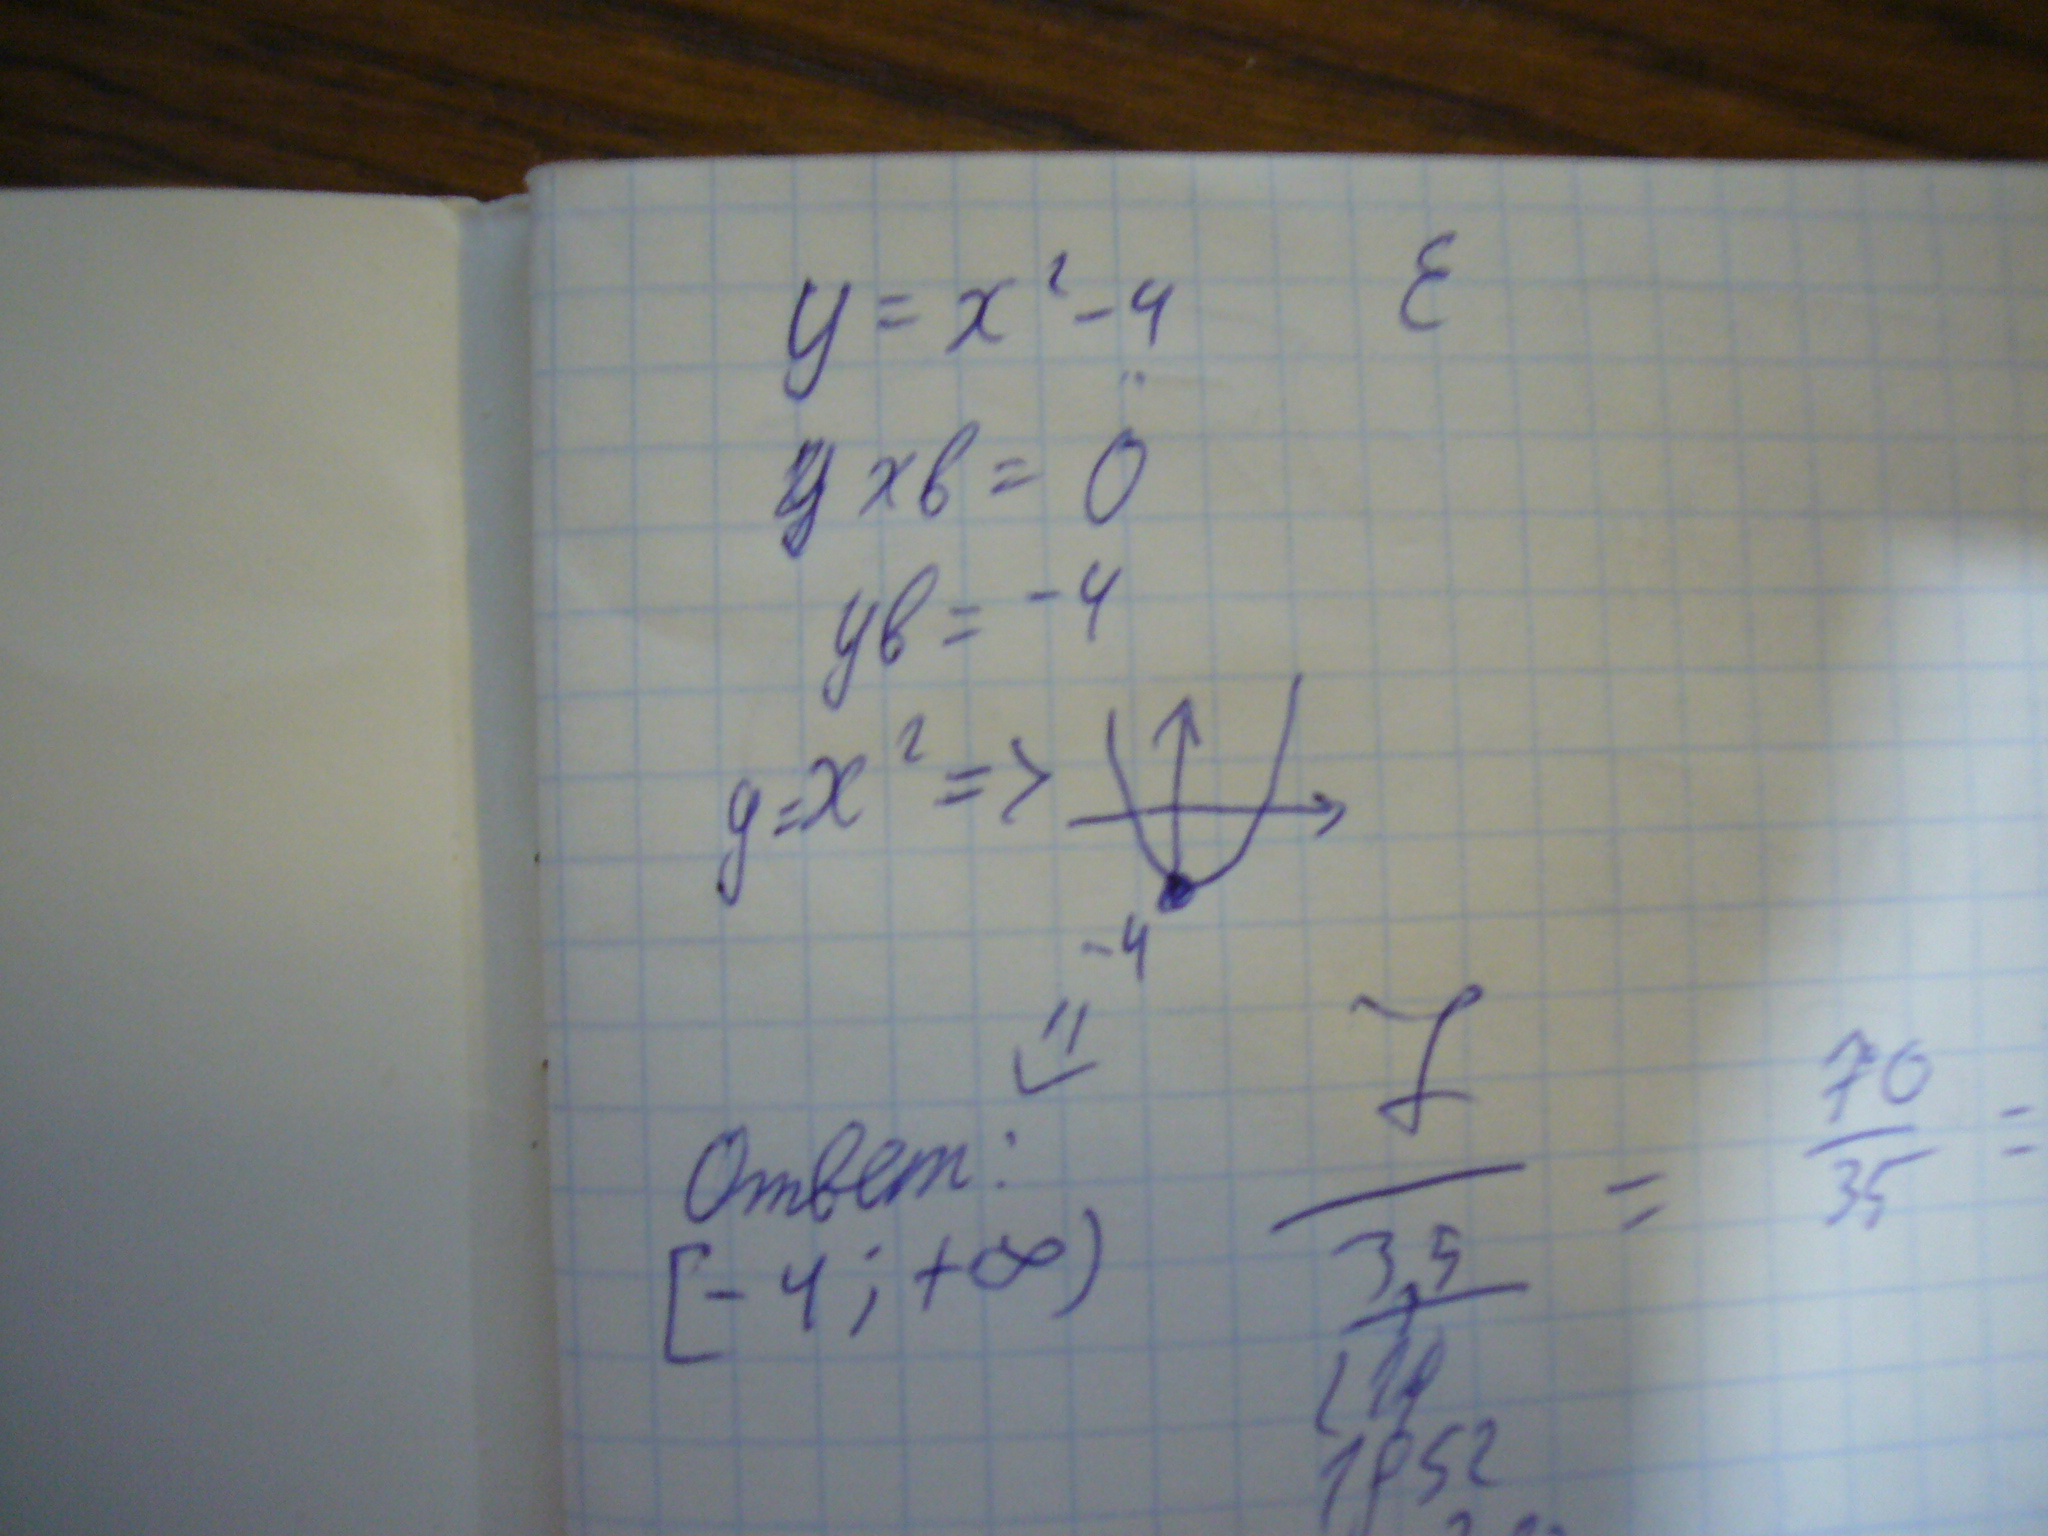 y = x² - 4
ε
xв = 0
yв = -4
y = x² =>
-4
Ответ:
[-4; +∞)
7
3,5
=
70
35
=
52